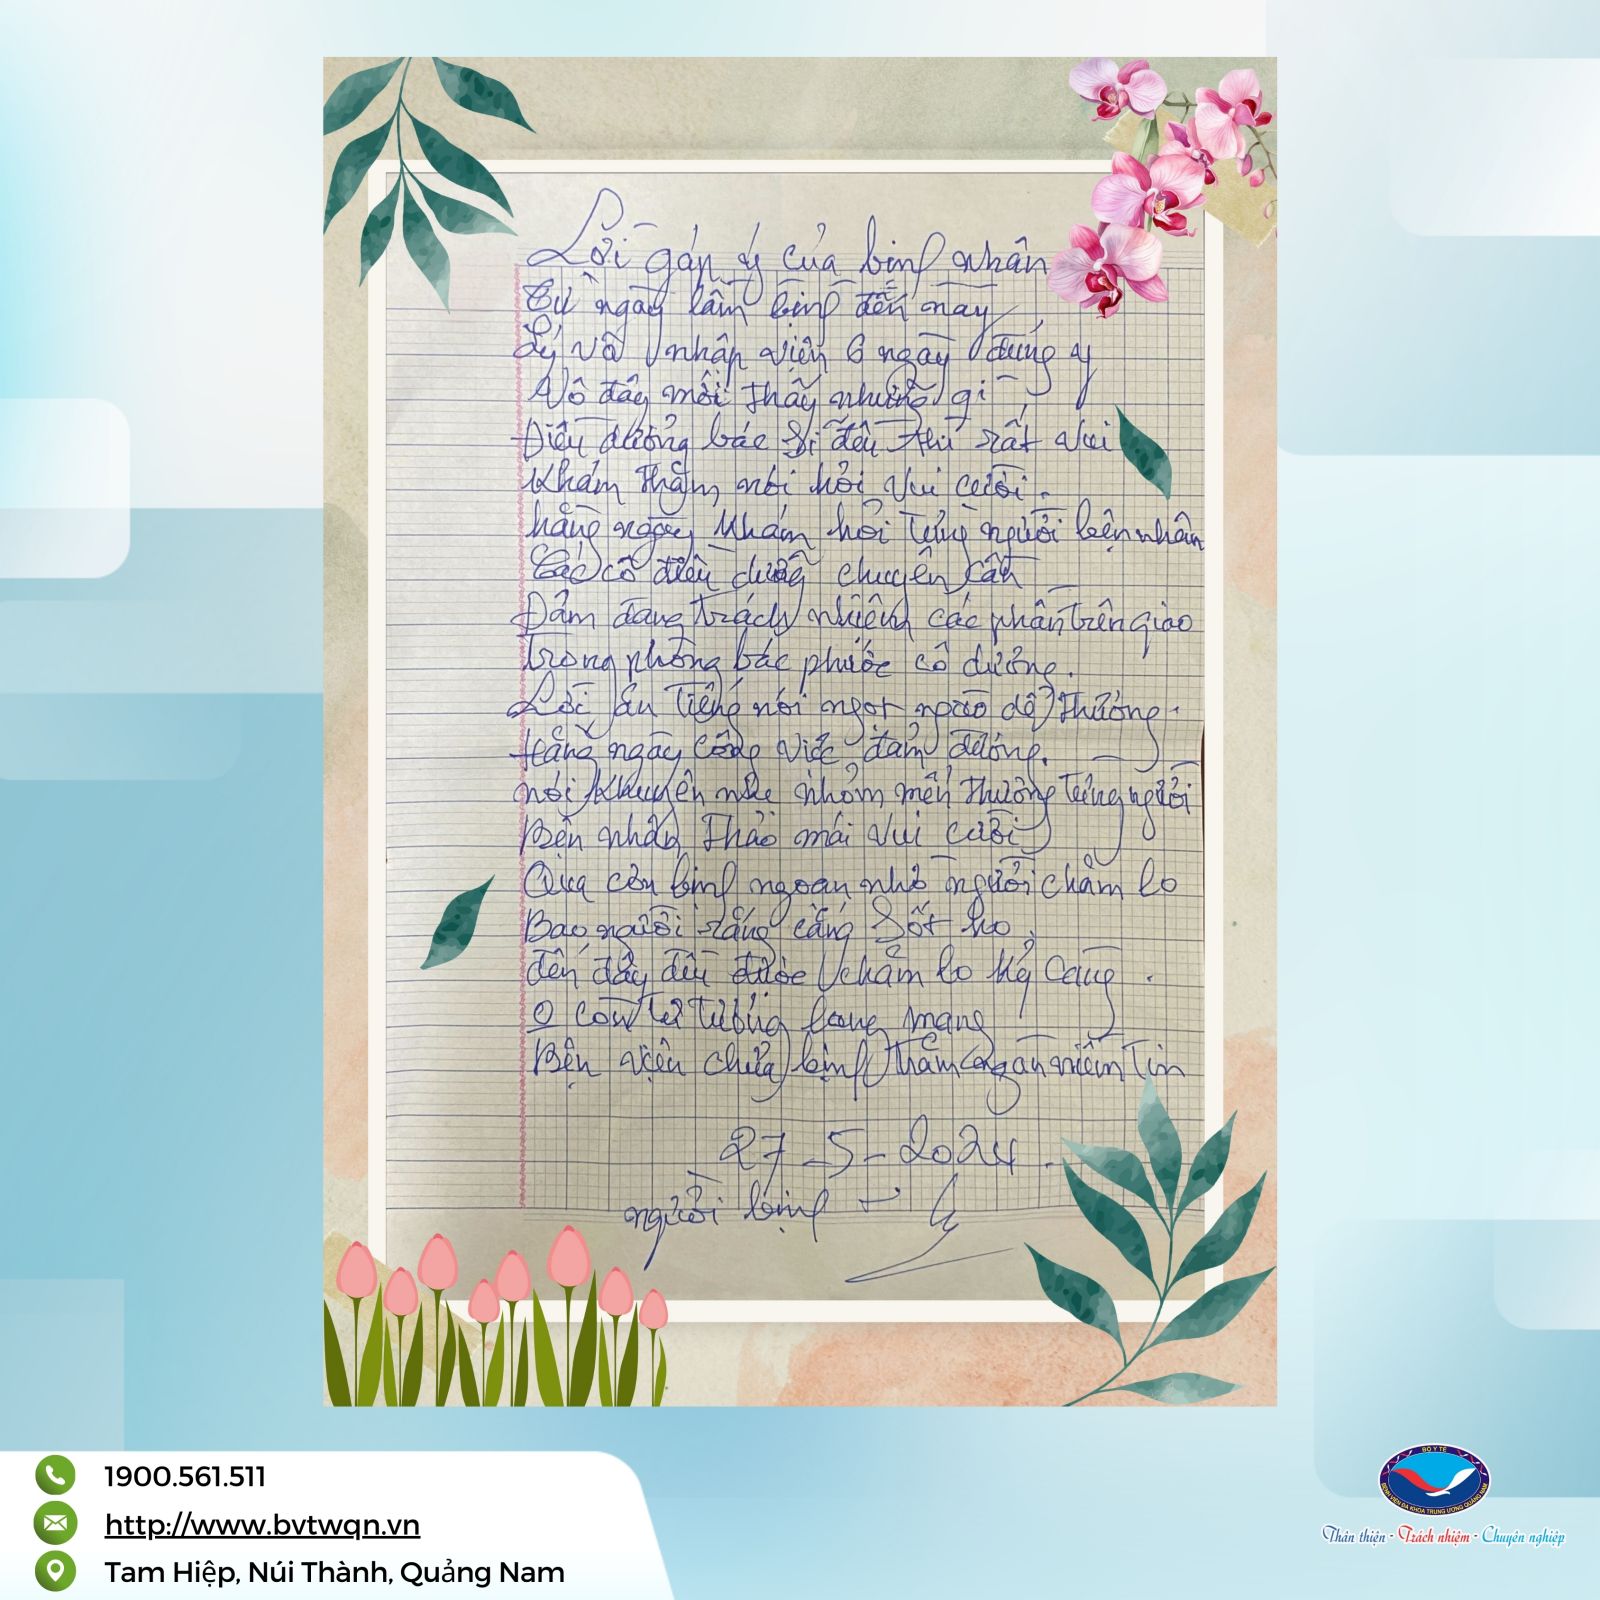 Lời góp ý của bịnh nhân
Từ ngày lâm bịnh đến nay
Lý vô nhập viện 6 ngày đúng y
Vô đây mới thấy những gì
Điều dưởng bác sĩ đều thì rất vui
Khám thăm nói hỏi vui cười.
hằng ngày khám hỏi từng người bện nhân
Các cô điều dưỡng chuyên cần
Đảm đang trách nhiệm các phần trên giao
Trong phòng bác phước cô dưởng.
Lời ân tiếng nói ngọt ngào dể thưởng.
Hằng ngày công việc đảm đương.
nói khuyên mến thương từng người
Bện nhân thảo mái vui cười
Qua cơn bịnh ngoan nhờ người chăm lo
Bao người sốt ho
đến đây đều được chăm lo kỷ càng.
tư tưởng lang mang
Bện viện chửa bịnh niềm tin
27-5-2024.
người bịnh
1900.561.511
http://www.bvtwqn.vn
Tam Hiệp, Núi Thành, Quảng Nam
BỘ Y TẾ
BỆNH VIỆN ĐA KHOA TRUNG ƯƠNG QUẢNG NAM
Thân thiện - Trách nhiệm - Chuyên nghiệp